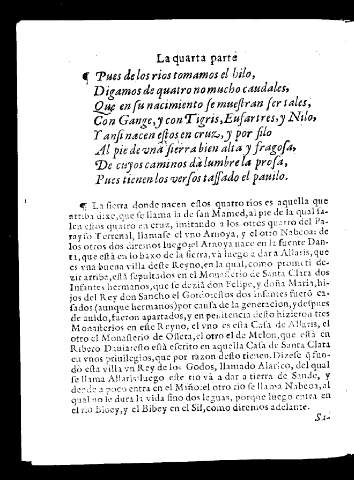 La quarta parte
¶ Pues de los rios tomamos el hilo,
Digamos de quatro no mucho caudales,
Que en su nacimiento se muestran ser tales,
Con Gange, y con Tigris, Eufartres, y Nilo,
Y ansi nacen estos en cruz, y por filo
Al pie de vna sierra bien alta y fragosa,
De cuyos caminos dà lumbre la prosa,
Pues tienen los versos tassado el pauilo.
¶ La sierra donde nacen estos quatro rios es aquella que
arriba dixe, que se llama la de san Mamed, al pie de la qual sa-
len estos quatro en cruz, imitando a los otros quatro del Pa-
rayso Terrenal, llamase el vno Arnoya, y el otro Nabcoa: de
los otros dos diremos luego, el Arnoya nace en la fuente Dan-
ta, que està en lo baxo de la sierra, và luego a dar a Allaris, que
es vna buena villa deste Reyno, en la qual, como prometi de-
zir arriba, està sepultados en el Monasterio de Santa Clara dos
Infantes hermanos, que se dezià don Felipe, y doña Maria, hi-
jos del Rey don Sancho el Gordo: estos dos infantes fuerõ ca-
sados (aunque hermanos) por causa de la generacion, y despues
de auido, fueron apartados, y en penitencia desto hizieron tres
Monasterios en este Reyno, el vno es esta Casa de Allaris, el
otro el Monasterio de Ossera, el otro el de Melon, que està en
Ribero Dauia: esto està escrito en aquella Casa de Santa Clara
en vnos priuilegios, que por razon desto tienen. Dizese q̃ fun-
dò esta villa vn Rey de los Godos, llamado Alarico, del qual
se llama Allaris: luego este rio và a dar a tierra de Sande, y
dende a poco entra en el Miño: el otro rio se llama Naboa, al
qual no le dura la vida sino dos leguas, porque luego entra en
el rio Biocy, y el Bibey en el Sil, como diremos adelante.
Sa-